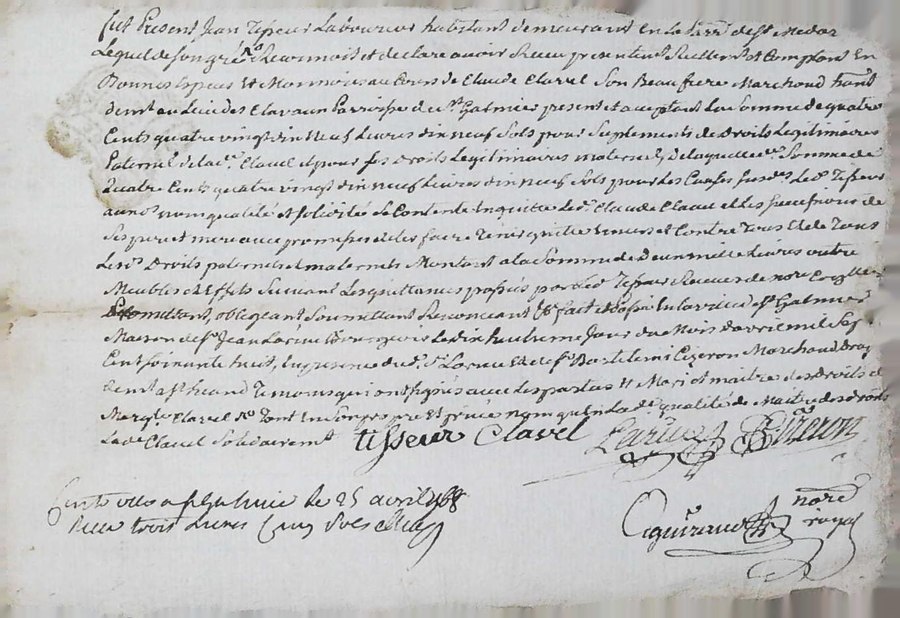 fut Présent Jean Tisseur Laboureur habitant demeurant En la parr. de St. Medar
Lequel de son gré a Reconnu et declaré avoir Receu presentem. Reellem. et Comptant En
Bonnes Especes et Monnoies au Cours de Claude Clavel Son Beau frere Marchand hant
demt au Lieu des Clavaux Parroisse de St. Galmier present et acceptant La Somme de quatre
Cents quatre vingt dix Neuf Livres dix neuf Sols pour Suplements de Droits Legitimaires
Paternels de lad. Clavel et pour ses Droits Legitimaires maternels de laquelle de. Somme de
Quatre Cents quatre vingt dix neuf Livres dix neuf Sols pour les Causes susd. Led. Tisseur
aud. nom qualité et solidité Se Contente En quitte led. Claude Clavel et les heritiers de
Ses pere et mere avec promesse de les faire Tenir quitte Envers et Contre Tous Et de Tous
Lesd. Droits paternels et maternels Montant a la Somme de Deux mille Livres outre
Meubles et Effets Suivant Les quittances passées par led. Tisseur Receues de nore
Promettant, obligeant, Soumettant Renonceant &a. fait et Passé En la ville de St. Galmier
Maison de Sr. Jean Larue Bourgeois Le dix huitieme Jour du Mois d'avril mil Sept
Cent Soixante huit, En presence dud. Sr. Larue Et de Sr. Bartelemi Cizeron Marchand Drap
demt a St. heand Temoins qui ont signés avec les parties Et Mari et maitre des Droits de
Margte Clavel So Tant En Son propre Et privé nom qu'En lad. qualité de Maitre des droits
Lade Clavel Solidairemt tisseur Clavel Larue Cizeron
Controllé a St Galmier le 25 avril 1768
Receu trois Livres Cinq Sols
Eguirand nore
royal